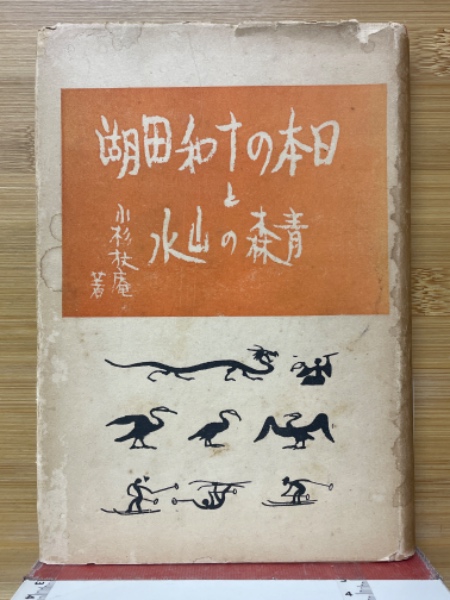 日本の十和田湖
と
青森の山水
小杉放庵
著